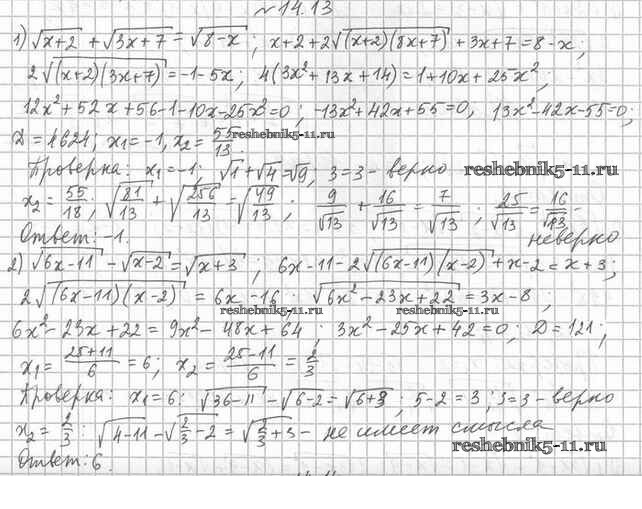 №14.13
1) √(x+2) + √(3x+7) = √(8-x); x+2+2√((x+2)(8x+7)) + 3x+7 = 8-x;
2√((x+2)(3x+7)) = -1-5x; 4(3x²+13x+14) = 1+10x+25x²;
12x²+52x+56-1-10x-25x²=0; -13x²+42x+55=0, 13x²-42x-55=0;
D = 4624; x₁=-1, x₂= 55/13. reshebnik5-11.ru
Проверка: x₁=-1; √1+√4=√9; 3=3 - верно reshebnik5-11.ru
x₂= 55/18; √(81/13) + √(256/13) = √(49/13); 9/√13 + 16/√13 = 7/√13; 25/√13 = 16/√13 -
Ответ: -1. неверно
2) √(6x-11) - √(x-2) = √(x+3); 6x-11-2√((6x-11)(x-2)) + x-2 = x+3;
2√((6x-11)(x-2)) = 6x-16; √(6x²-23x+22) = 3x-8;
reshebnik5-11.ru reshebnik5-11.ru
6x²-23x+22 = 9x²-48x+64; 3x²-25x+42=0; D=121;
x₁= (25+11)/6 = 6; x₂= (25-11)/6 = 2/3
Проверка: x₁=6; √(36-11) - √(6-2) = √(6+3); 5-2=3, 3=3 - верно
x₂= 2/3: √(4-11) - √(2/3-2) = √(2/3+3) - не имеет смысла
Ответ: 6. reshebnik5-11.ru